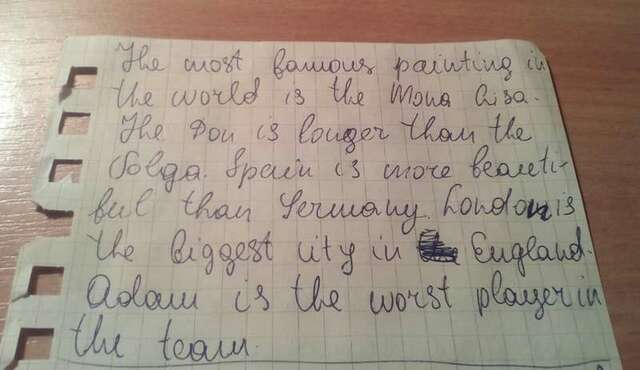 The most famous painting in
the world is the Mona Lisa.
The Don is longer than the
Volga. Spain is more beauti-
ful than Germany. London is
the biggest city in England.
Adam is the worst player in
the team.